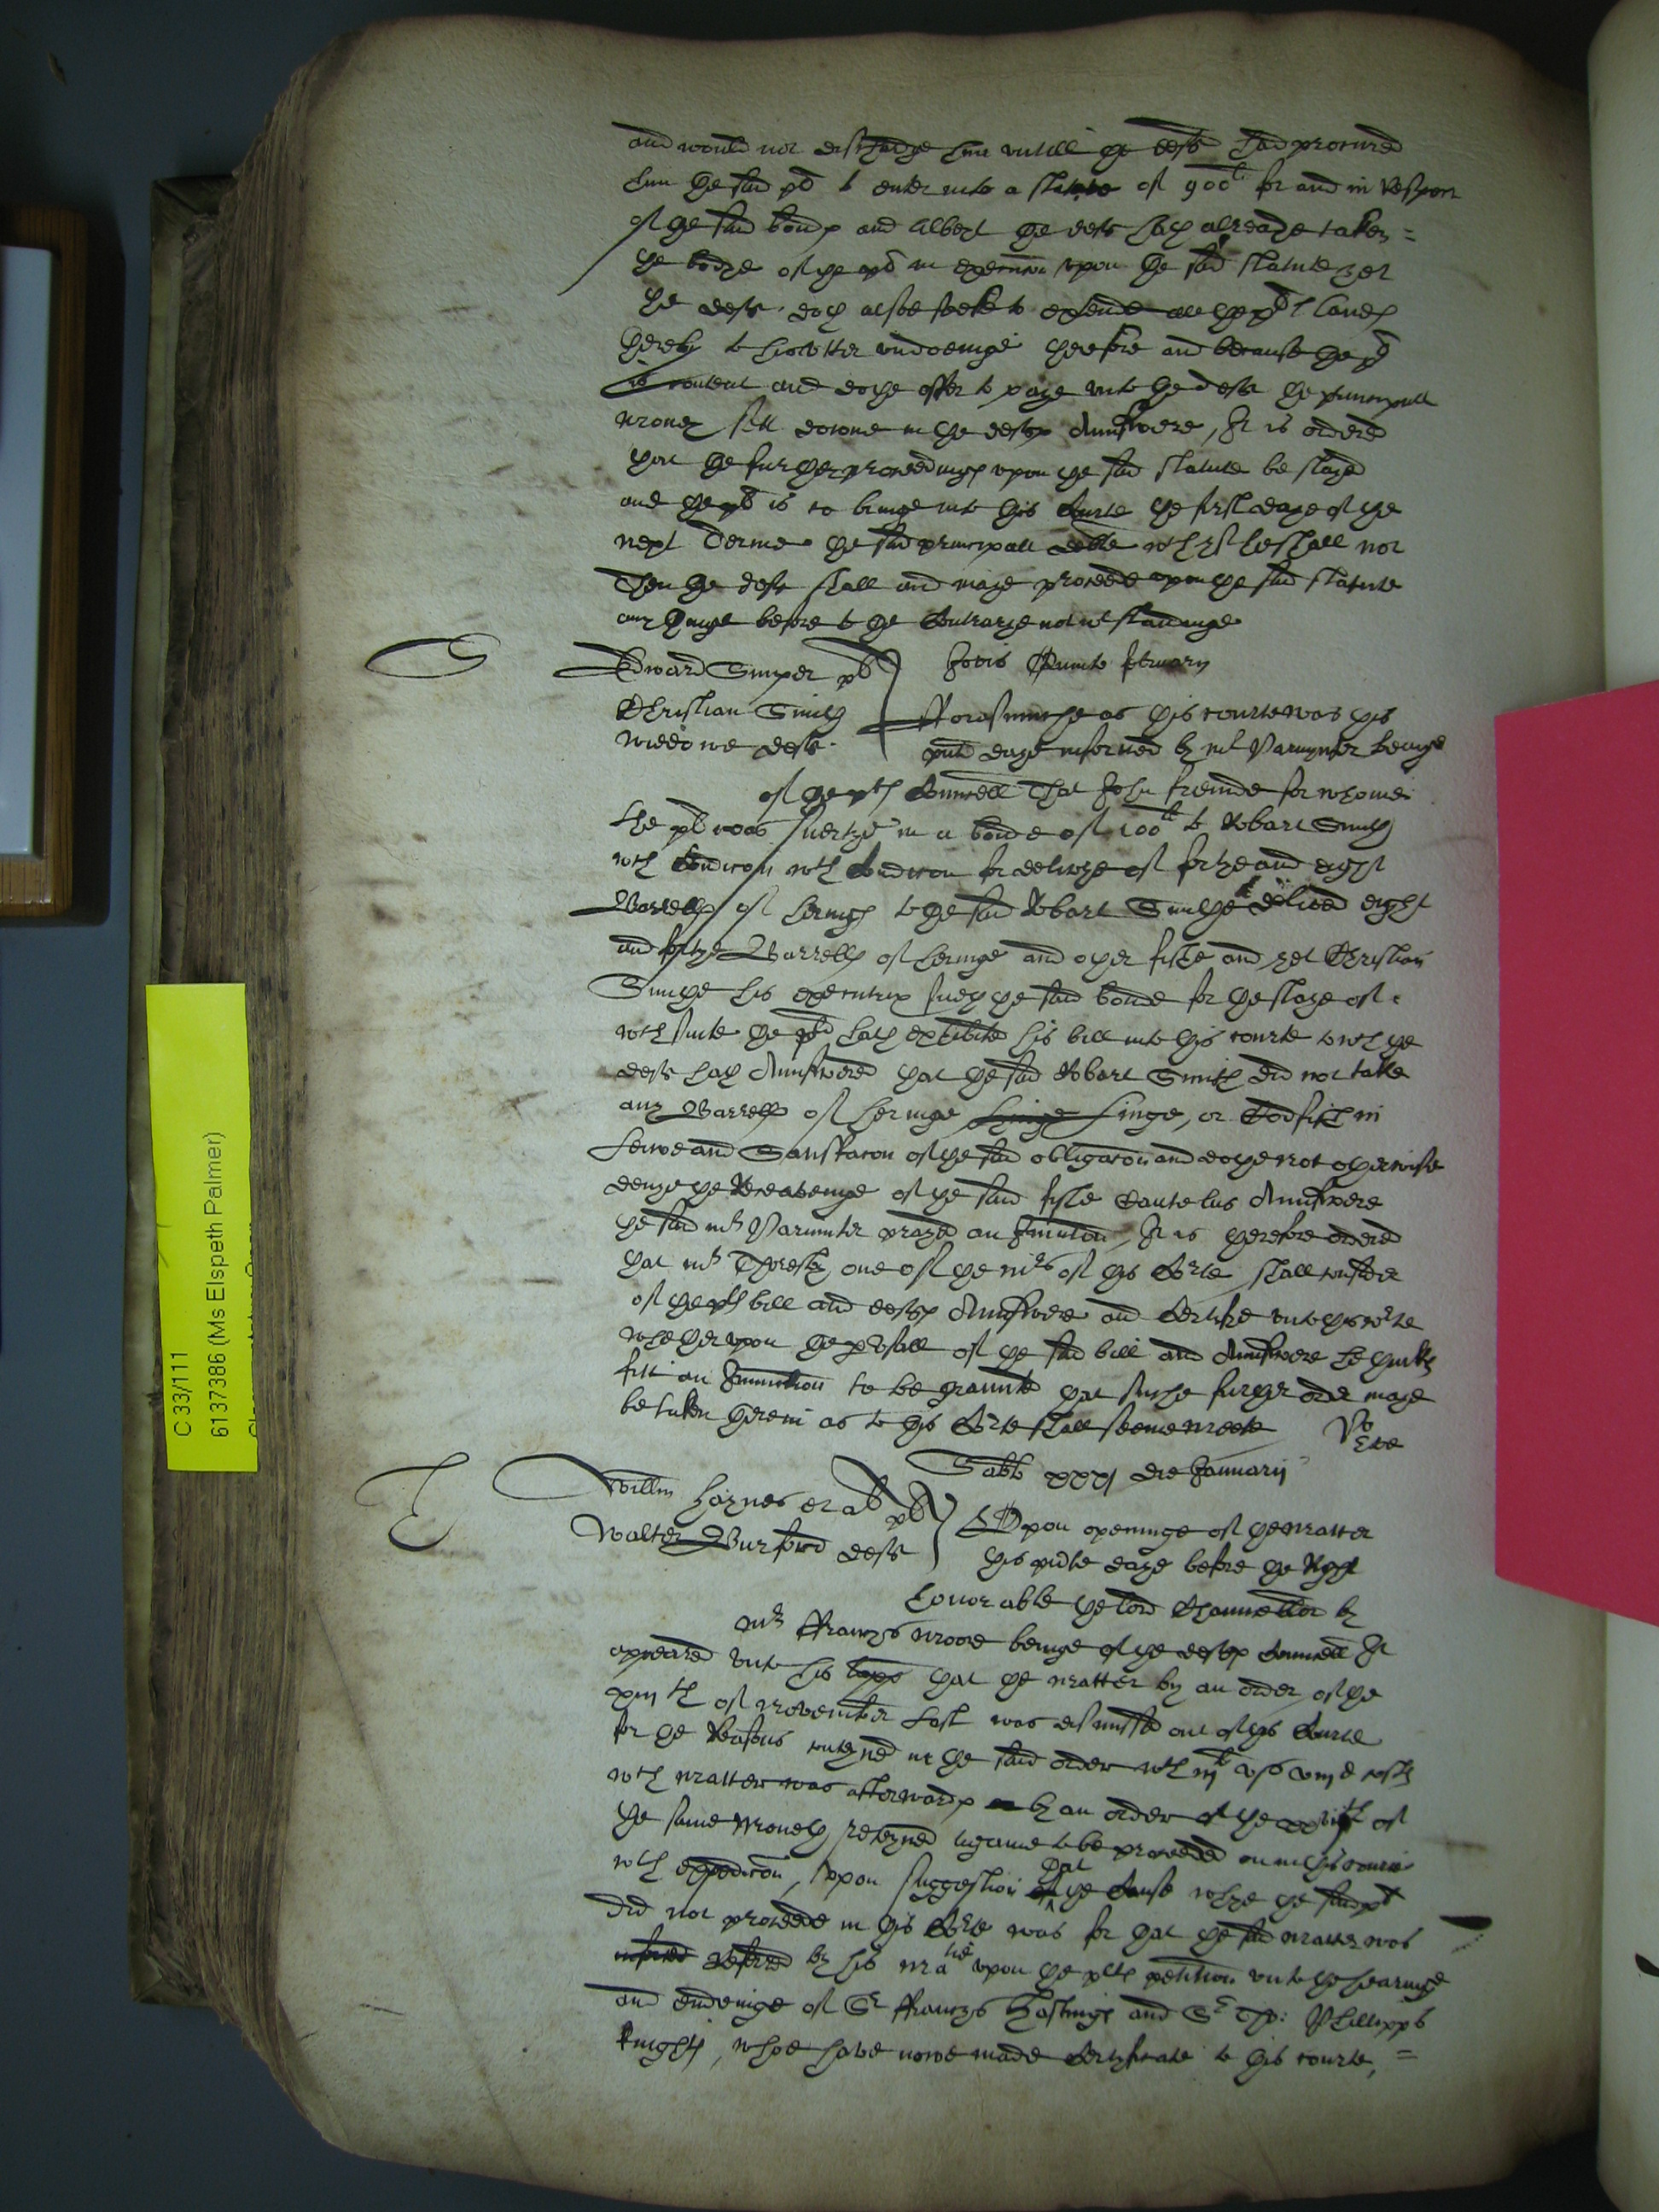 and would not discharge him untill the deft had procured
him the said pl to enter into a statute of 900li for and in respect
of the said bond and albeyt the deft hath alreadye taken =
the bodye of the pl in execucion upon the said statute yet
the deft doth alsoe seeke to extende all the pl landes
thereby to his utter undoeinge therefore and because the pl
is content and dothe offer to paye unto the deft the principall
money sett downe in the deftes Aunswere, It is ordered
that the further proceedinges upon the said statute be stayed
and the pl is to bringe into this Courte the first daye of the
next Terme the said principall debte wch if he shall not
Then the deft shall and maye proceede upon the said statute
any thinge before to the Contrarye notwthstandinge
Edward Sinper pl Jovis Quinto februarii
Christian Smith Forasmuche as this courte was this
widdowe deft. pnte daye informed by mr Parmynter beinge
of the ples Councell That John freinde for whome
the pl was suertye in a bonde of 100li to Robart Smith
wth Condicon wth Condicon for deliverye of fortye and eight
Barrells of heringes to the said Robart Smithe delivered eight
and fortye Barrells of heringe and other fishe and yet Christian
Smithe his executrix sueth the said bonde for the staye of
wch suite the pl hath exhibited his bill into this courte to wch the
deft hath Aunswered that the said Robart Smith did not take
any Barrells of heringe linge, or Codfish in
leiwe and Satisfacon of the said obligacon and dothe not otherwise
denye the Receavinge of the said fishe Aunswere
the said mr Parminter prayed an Iniunccion, It is therefore ordered
that mr Thresher one of the mrs of this Courte shall consider
of the ples bill and deftes Aunswere and Certifie unto this courte
whether upon the perusall of the said bill and Aunswere he thinke
fitt an Iniunction to be graunted that suche further order maye
be taken therein as to this Courte shall seeme meete
Sabbti xxxj die Januarii
Willm Haynes et al pl Upon openinge of the matter
Walter Burford deft this pnte daye before the Right
honorable the lord Chauncellor by
mr Frauncys moore beinge of the deftes Councell It
appeared unto his lopp that the matter by an order of the
xiijth of November last was dismissed out of this Courte
for the Reasons conteyned in the said order wth iijli vjs viijd costes
wch matter was afterwardes by an order of the xxvijth of
the same Moneth reteyned againe to be proceeded on in this courte
wth expedicon, upon suggestion that the Cause whye the said pl
did not proceede in this Courte was for that the said matter was
referred by his matie upon the ples petition unto the hearinge
and endeinge of Sr Frauncys Hastinges and Sr Tho: Phillipps
knightes, whoe have nowe made Certificate to this courte, =
C 33/111
6137386 (Ms Elspeth Palmer)